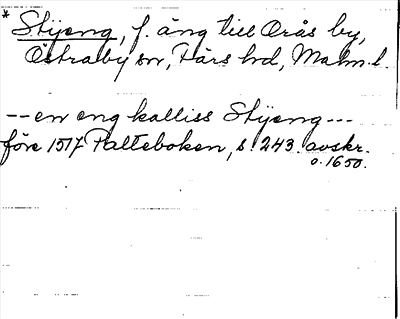 * Stijeng, f. äng till Orås by,
Östraby sn, Färs hd, Malm. l.
--en eng kalliss Stijeng---
före 1517 Palteboken, s. 243. avskr.
o. 1650.